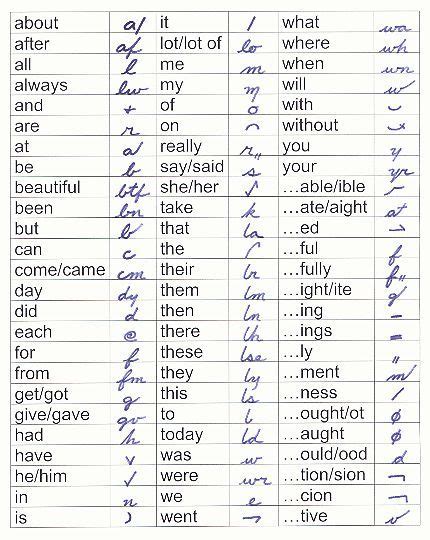 about a/ it / what wa
after af lot/lot of lo where wh
all l me m when wn
always lw my m will w
and + of o with
are r on without
at a/ really r,, you y
be b say/said s your yr
beautiful btf she/her …able/ible
been bn take k …ate/aight at
but b that la …ed
can c the …ful f
come/came cm their lr …fully f,,
day dy them lm …ight/ite
did d then ln …ing –
each e there lh …ings =
for f these lse …ly ,,
from fm they ly …ment m
get/got g this ls …ness /
give/gave gv to l …ought/ot ø
had h today ld …aught ø
have v was w …ould/ood d
he/him ✓ were wr …tion/sion ¬
in n we e …cion ¬
is went ¬ …tive v